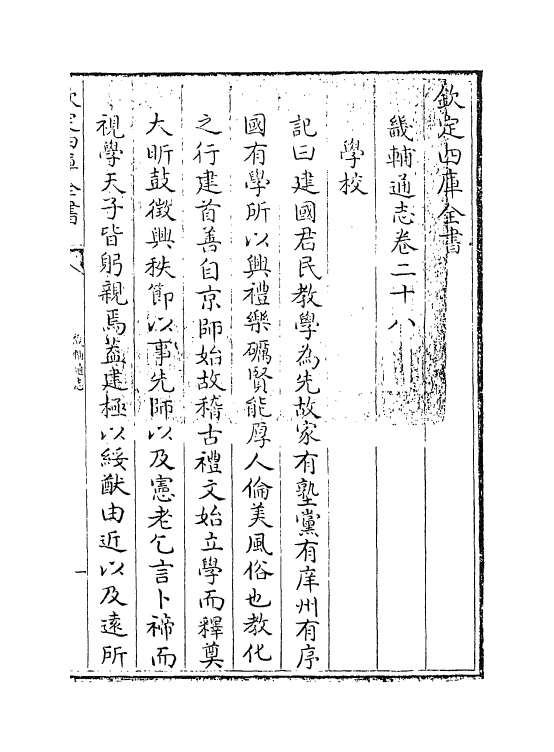 欽定四庫全書
畿輔通志卷二十八
學校
記曰建國君民教學為先故家有塾黨有庠州有序
國有學所以興禮樂礪賢能厚人倫美風俗也教化
之行建首善自京師始故稽古禮文始立學而釋奠
大昕鼓徵興秩節以事先師以及憲老乞言卜禘而
視學天子皆躬親焉蓋建極以綏猷由近以及遠所
欠定四庫全書
畿輔通志
一